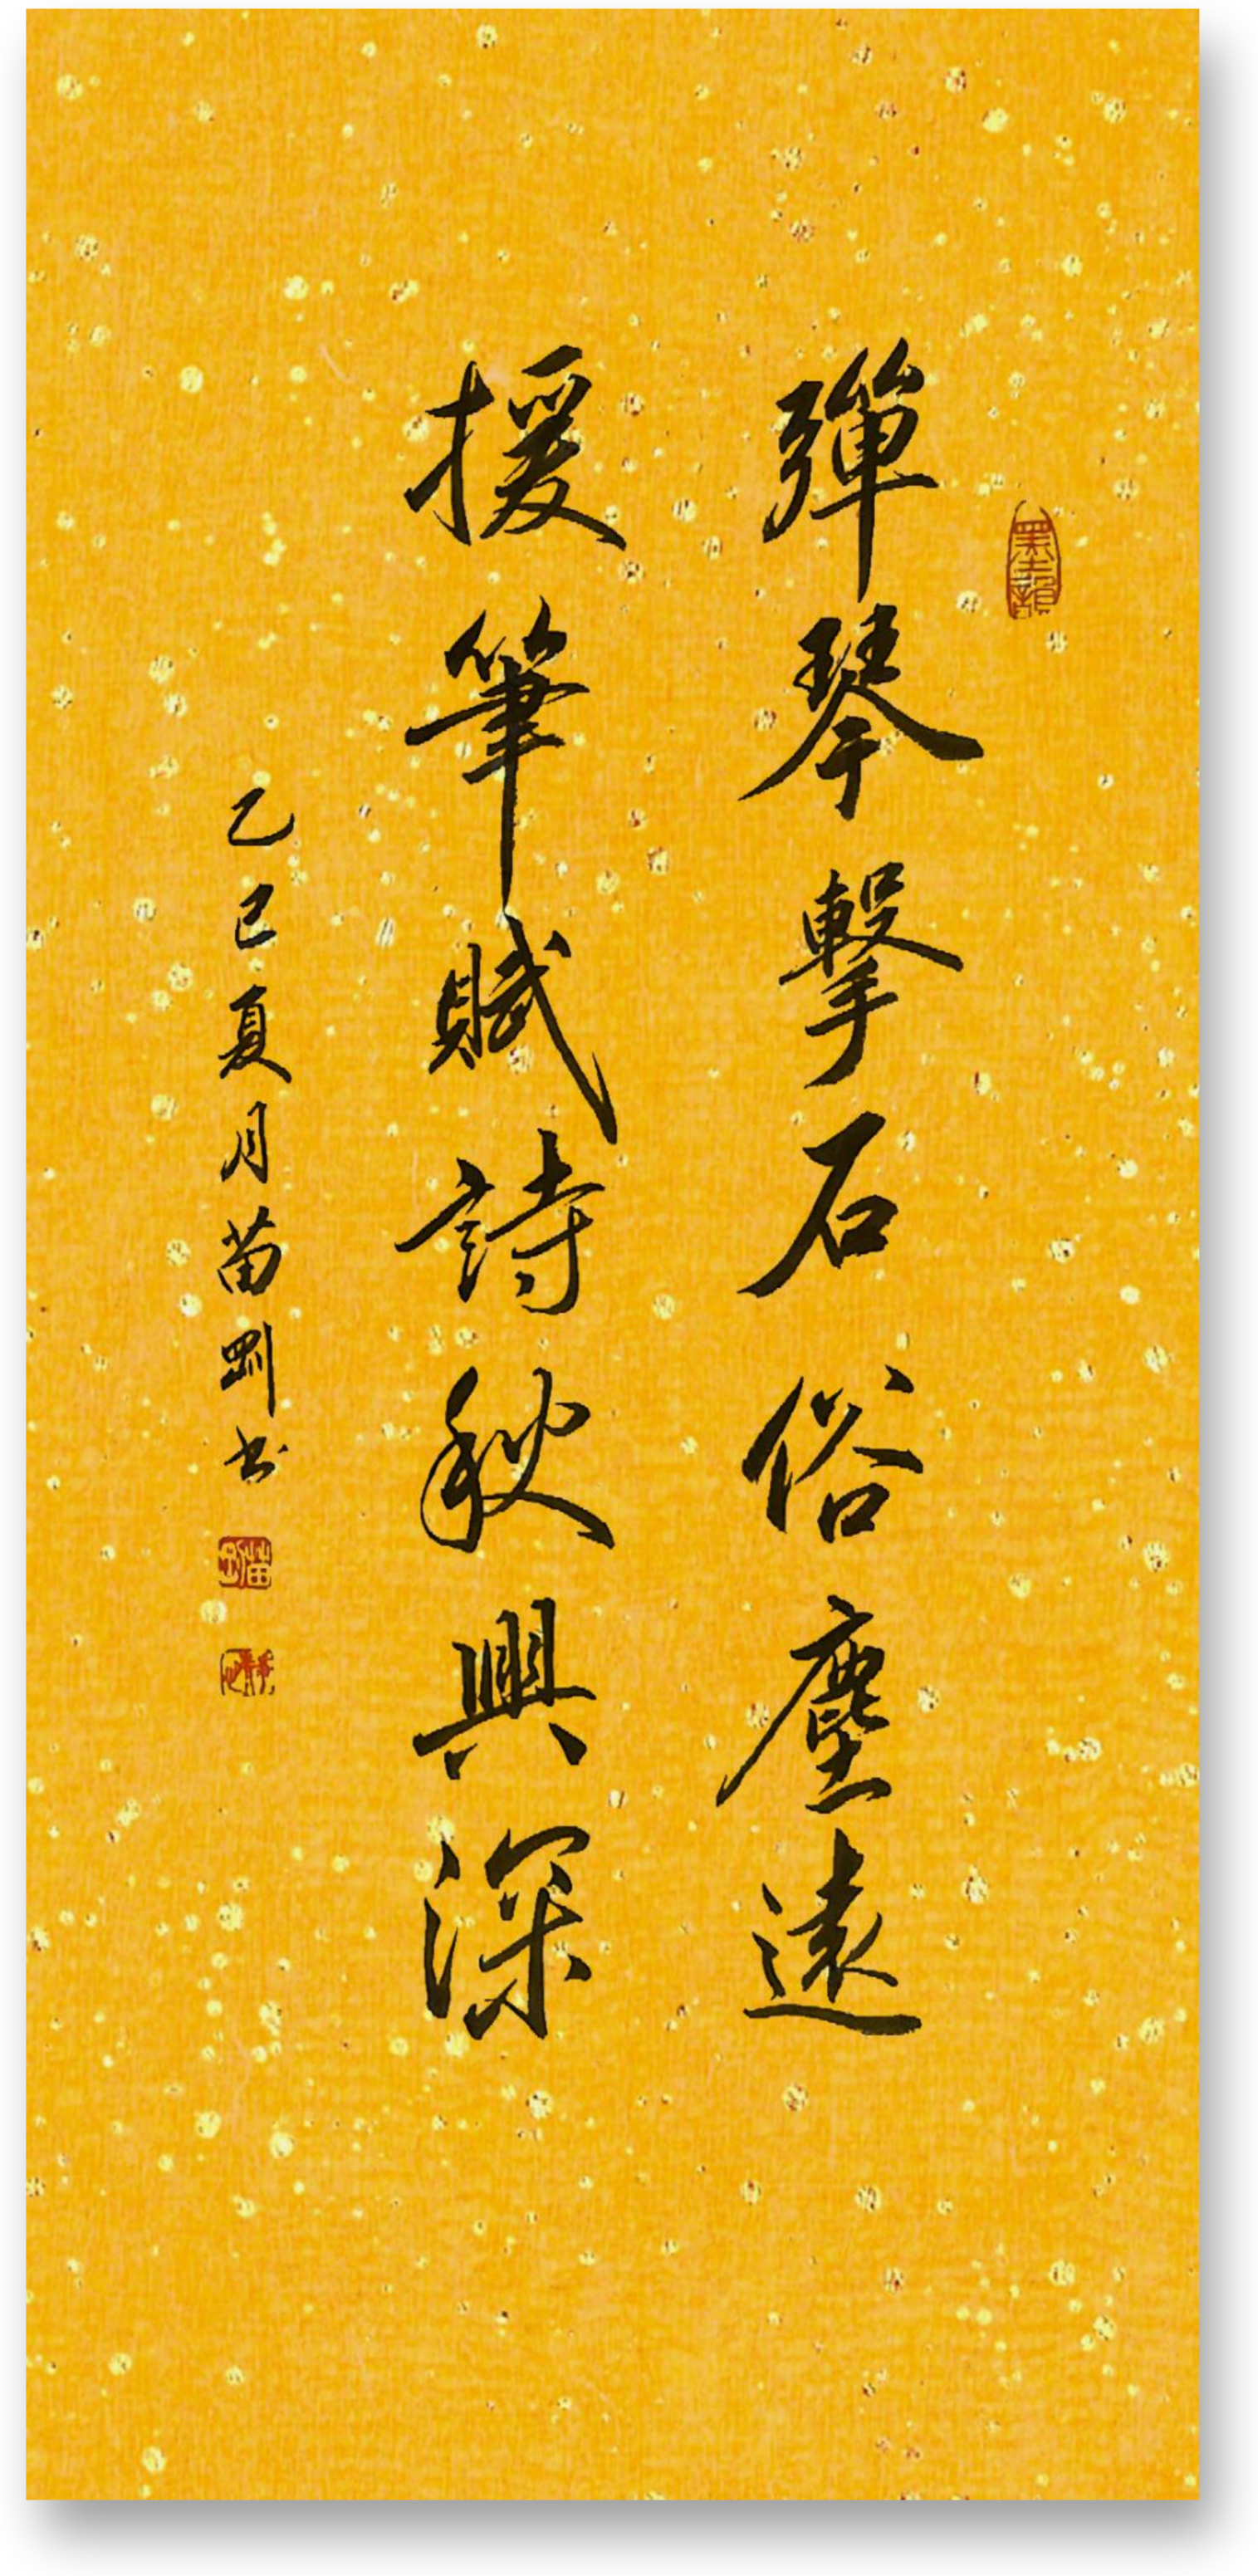 彈琴擊石俗塵遠
援筆賦詩秋興深
乙巳夏月苗剛书
墨韻